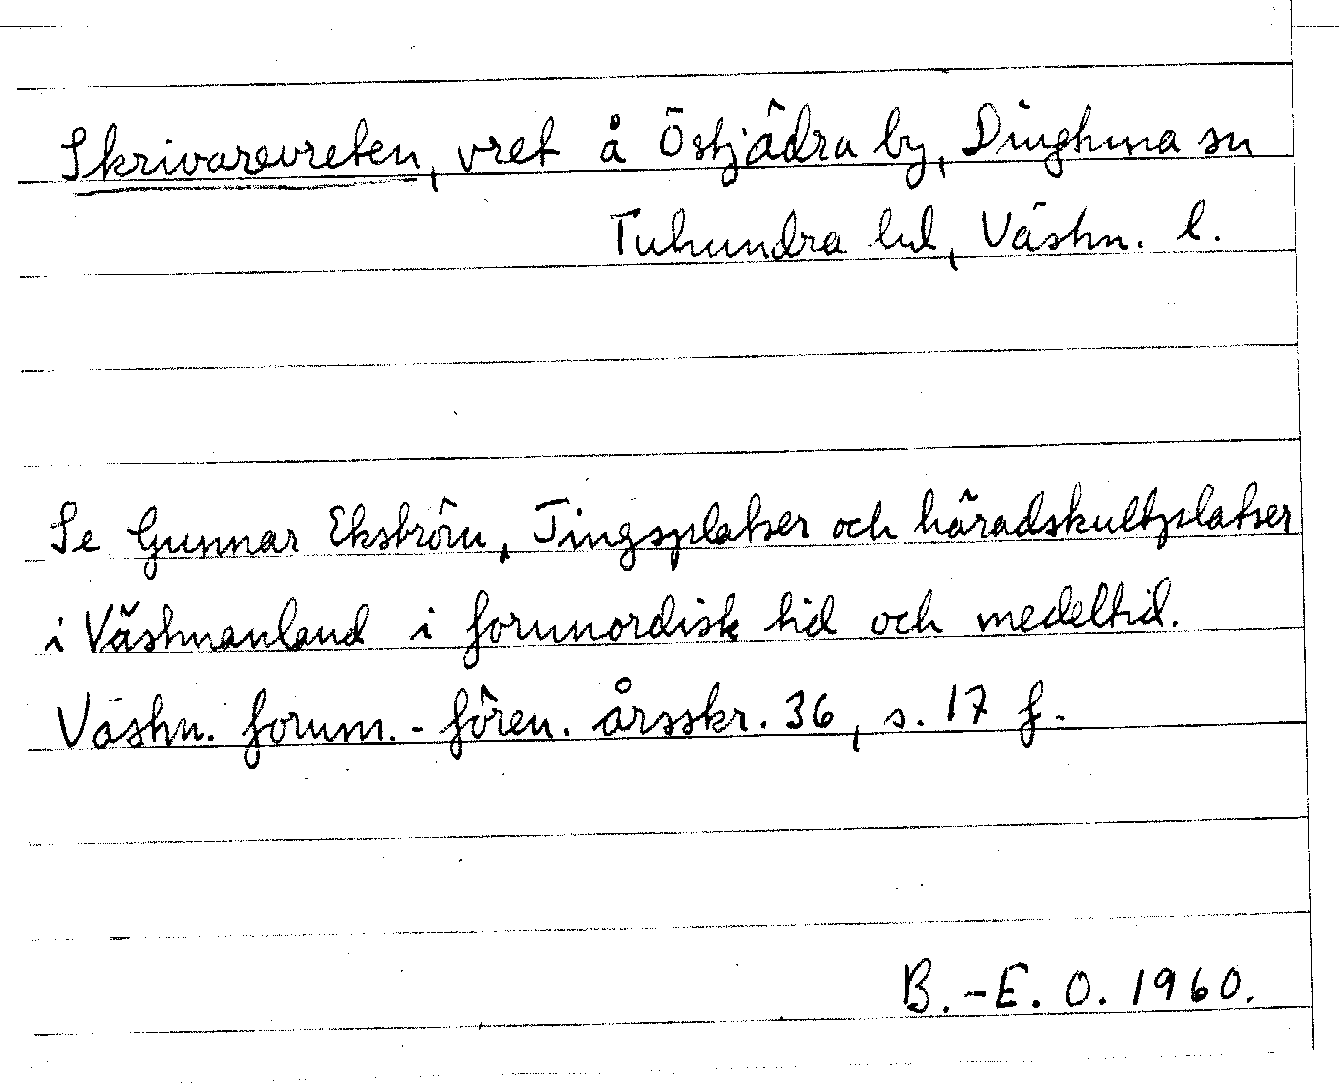 Skrivarevreten, vret å Östjädra by, Dingtuna sn
Tuhundra hd, Västm. l.
Se Gunnar Ekström, Tingsplatser och häradskultplatser
i Västmanland i fornnordisk tid och medeltid.
Västm. fornm.-fören. årsskr. 36, s. 17 f.
B.-E. O. 1960.